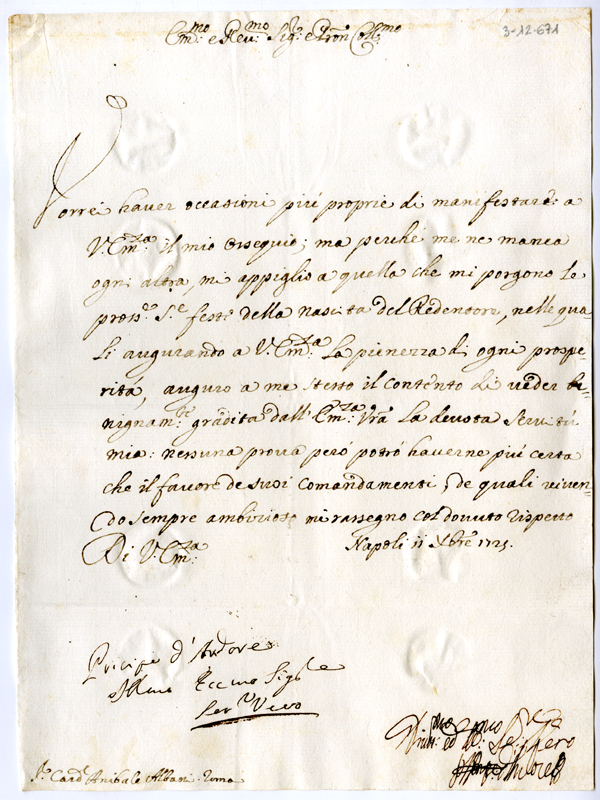 3-12-671
Em:mo e Rev:mo Sig:r e Pron Coll:mo
Vorrei haver occasioni più proprie di manifestare: a
V. Em:za il mio ossequio; ma perche me ne manca
ogni altra, mi appiglio a quella che mi porgono le
pross:e S:te feste della nascita del Redentore, nelle qua-
li augurando a V. Em:za la pienezza di ogni prospe-
rità, auguro a me stesso il contento di veder be-
nignam:te gradita dall' Em:za Vrã la devota servitù
mia: nessuna prova però potrò haverne più certa
che il favore de suoi comandamenti, de quali viven-
do sempre ambizioso mi rassegno col dovuto rispetto
Di V. Em:za
Napoli 11 Xbre 1725.
Principe d'Andore
Eccmo Sigre
Ser:re Vero
S:r Card: Anibale Albani. Roma